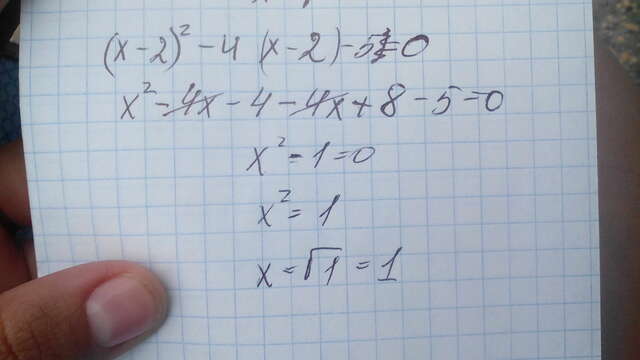 (x-2)² - 4 (x-2) - 5 = 0
x² - 4x - 4 - 4x + 8 - 5 = 0
x² - 1 = 0
x² = 1
x = √1 = 1